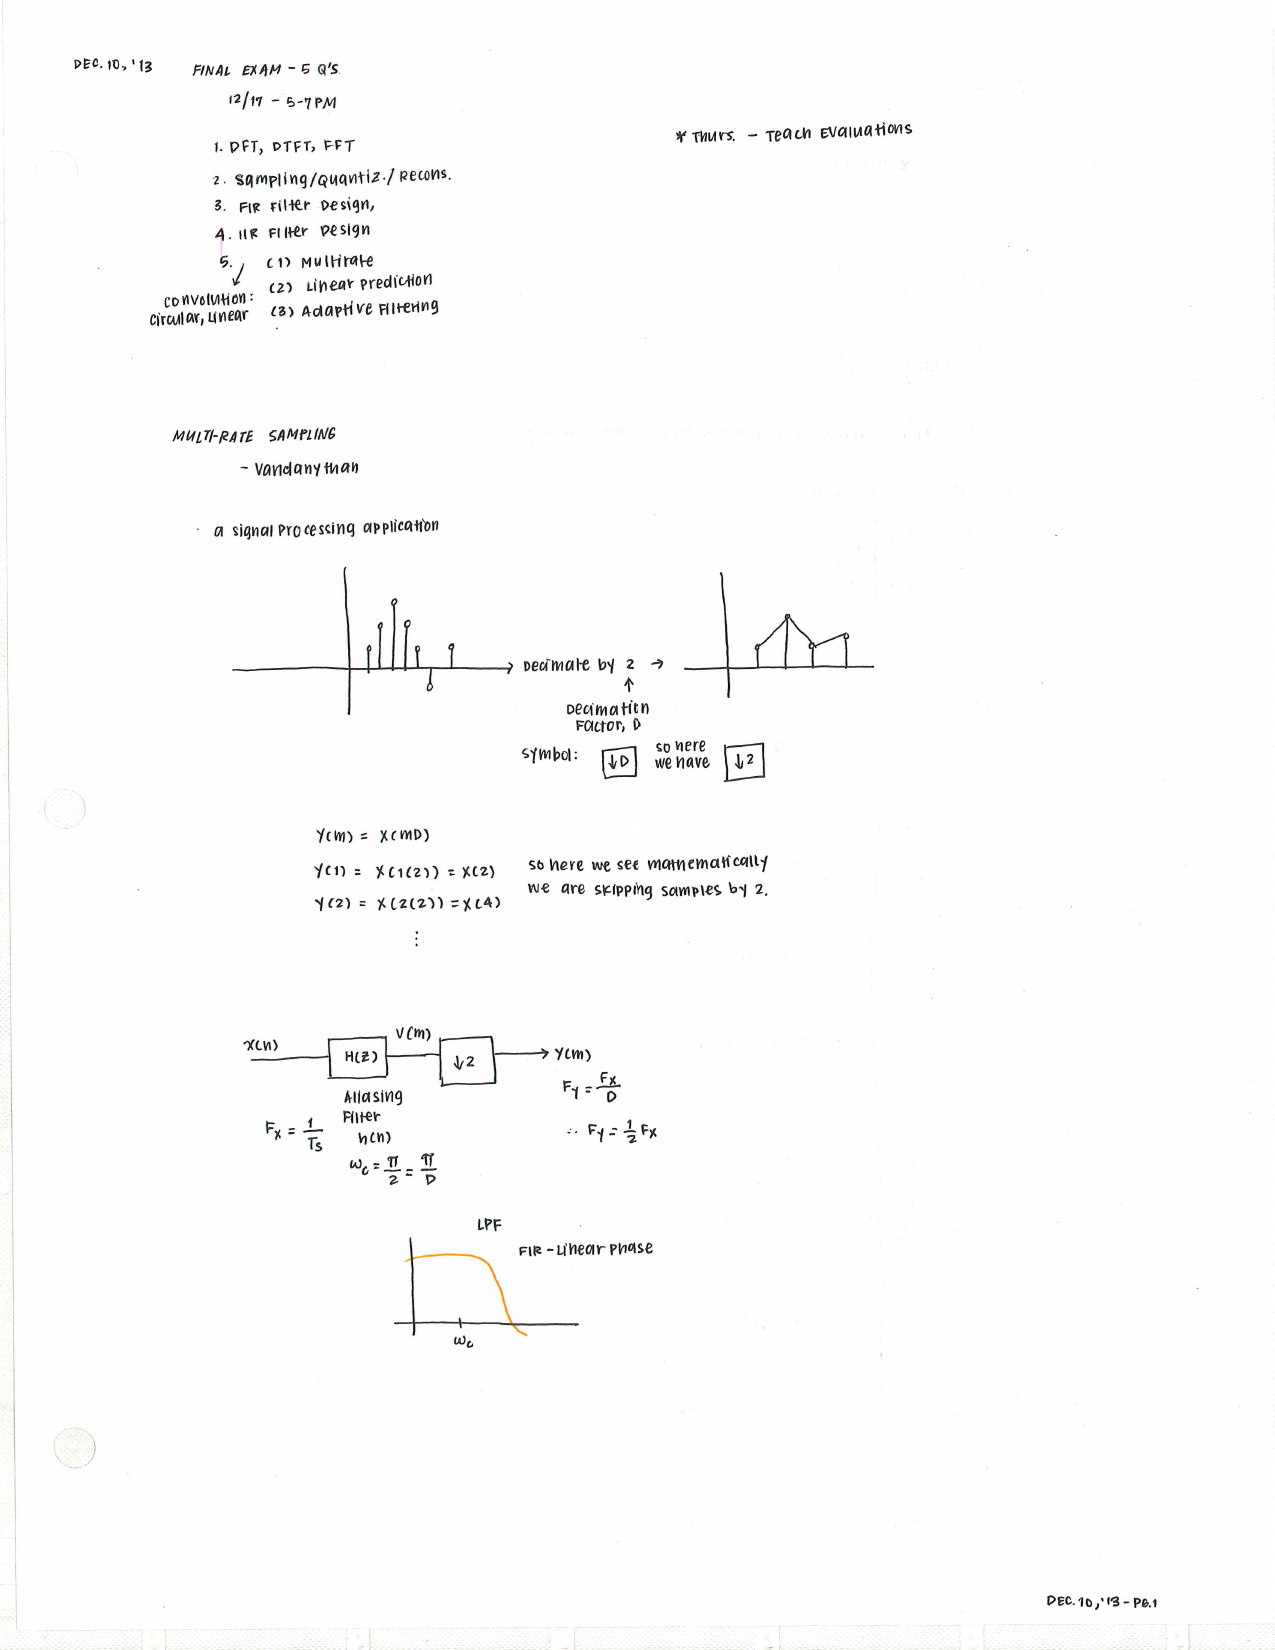 DEC. 10, '13
FINAL EXAM - 5 Q'S.
12/17 - 5-7 PM
* Thurs. - Teach Evaluations
1. DFT, DTFT, FFT
2. Sampling/Quantiz./Recons.
3. FIR Filter Design,
4. IIR Filter Design
5. (1) Multirate
(2) Linear Prediction
(3) Adaptive Filtering
Convolution:
Circular, Linear
MULTI-RATE SAMPLING
- Vandanythan
· a signal processing application
Decimate by 2 →
↑
Decimation
Factor, D
symbol: ↓D so here we have ↓2
Y(m) = X(mD)
Y(1) = X(1(2)) = X(2)
Y(2) = X(2(2)) = X(4)
⋮
so here we see mathematically
we are skipping samples by 2.
X(n) H(z) V(m) ↓2 Y(m)
Aliasing
Filter
h(n)
ωc = π/2 = π/D
Fx = 1/Ts
Fy = Fx/D
∴ Fy = 1/2 Fx
LPF
FIR - Linear Phase
ωc
DEC. 10, '13 - PG. 1